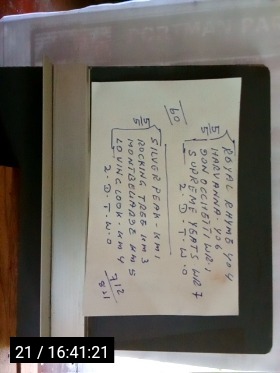 ROYAL RHYME Y04
HARVANNA. Y06
DONOCCIETTI WR.1
SUPREME YEATS WR 7
2. D. T. W. O
5/5
60
SILVER PEAK - KM1
ROCKING TREE KM3
MONTBELIARDE KM5
LOVING LOOK. KM4
2. D. T. W. O
5/5
21 / 16:41:21